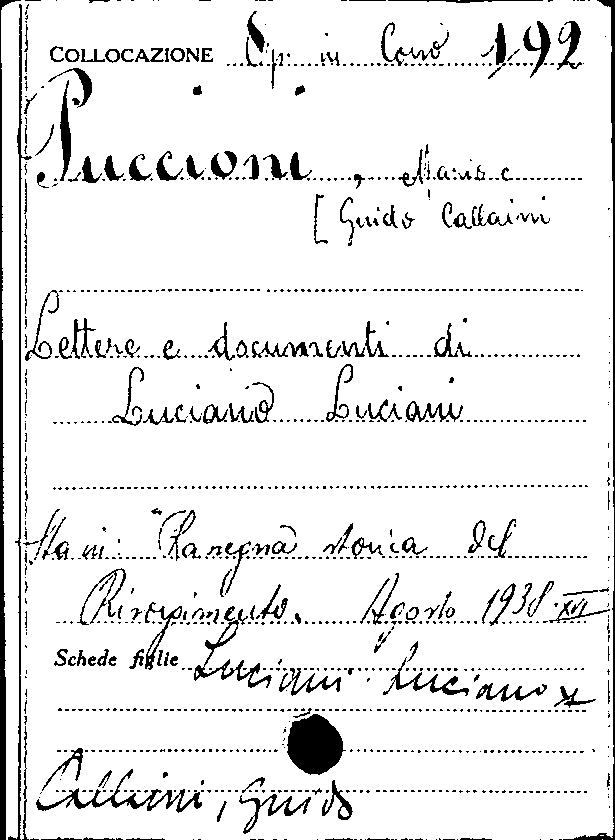 COLLOCAZIONE Op. in Cons 192
Puccioni, Mario e
[Guido Callaini
Lettere e documenti di
Luciano Luciani
Sta in: "Rassegna storica del
Risorgimento. Agosto 1938-XVI
Schede figlie Luciani Luciano x
Callaini, Guido